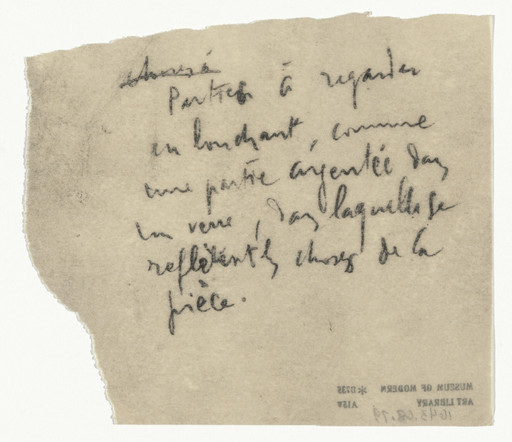 choses à
Parties à regarder
en louchant, comme
une partie argentée dans
un verre, dans laquelle se
reflètent les choses de la
pièce.
MUSEUM OF MODERN
ART LIBRARY
1643.68.79